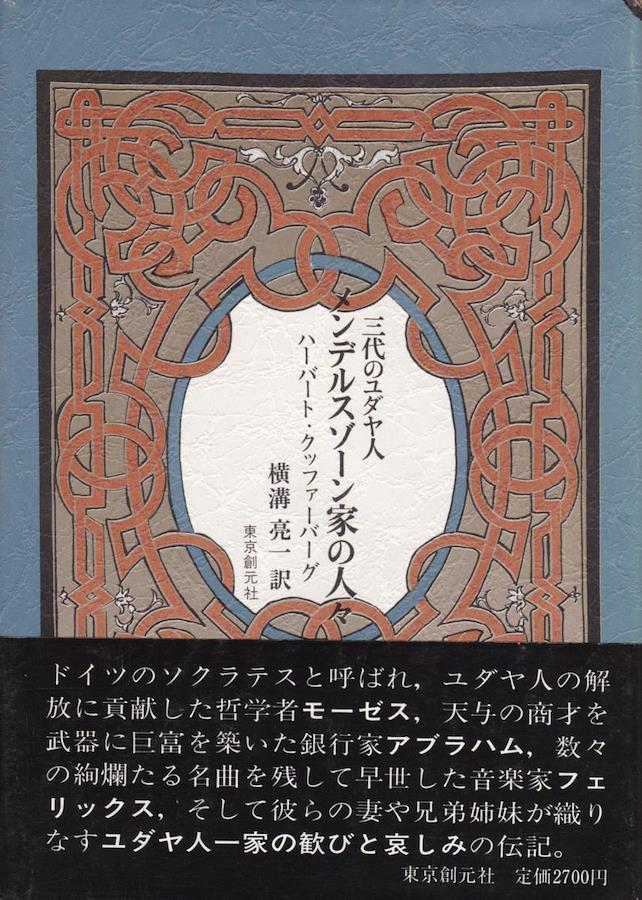 三代のユダヤ人
メンデルスゾーン家の人々
ハーバート・クッファーバーグ
横溝亮一訳
東京創元社
ドイツのソクラテスと呼ばれ，ユダヤ人の解
放に貢献した哲学者モーゼス，天与の商才を
武器に巨富を築いた銀行家アブラハム，数々
の絢爛たる名曲を残して早世した音楽家フェ
リックス，そして彼らの妻や兄弟姉妹が織り
なすユダヤ人一家の歓びと哀しみの伝記。
東京創元社　定価2700円